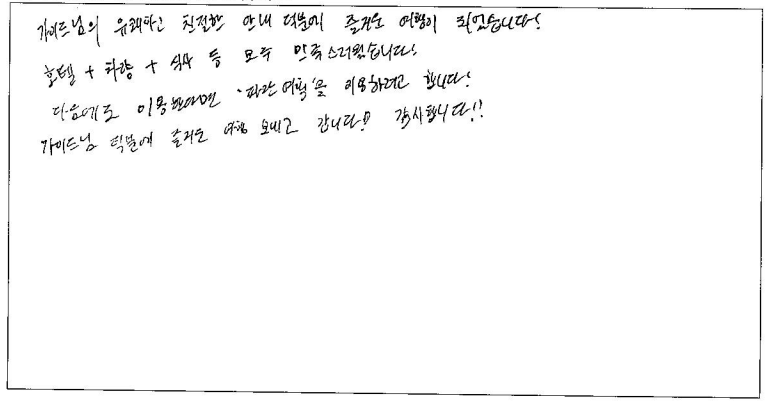 가이드님의 유쾌하고 친절한 안내 덕분에 즐거운 여행이 되었습니다!
호텔 + 차량 + 식사 등 모두 만족스러웠습니다!
다음에도 이용한다면 '파란여행'을 이용하려고 합니다!
가이드님 덕분에 즐거운 여행 보내고 갑니다! 감사합니다!!